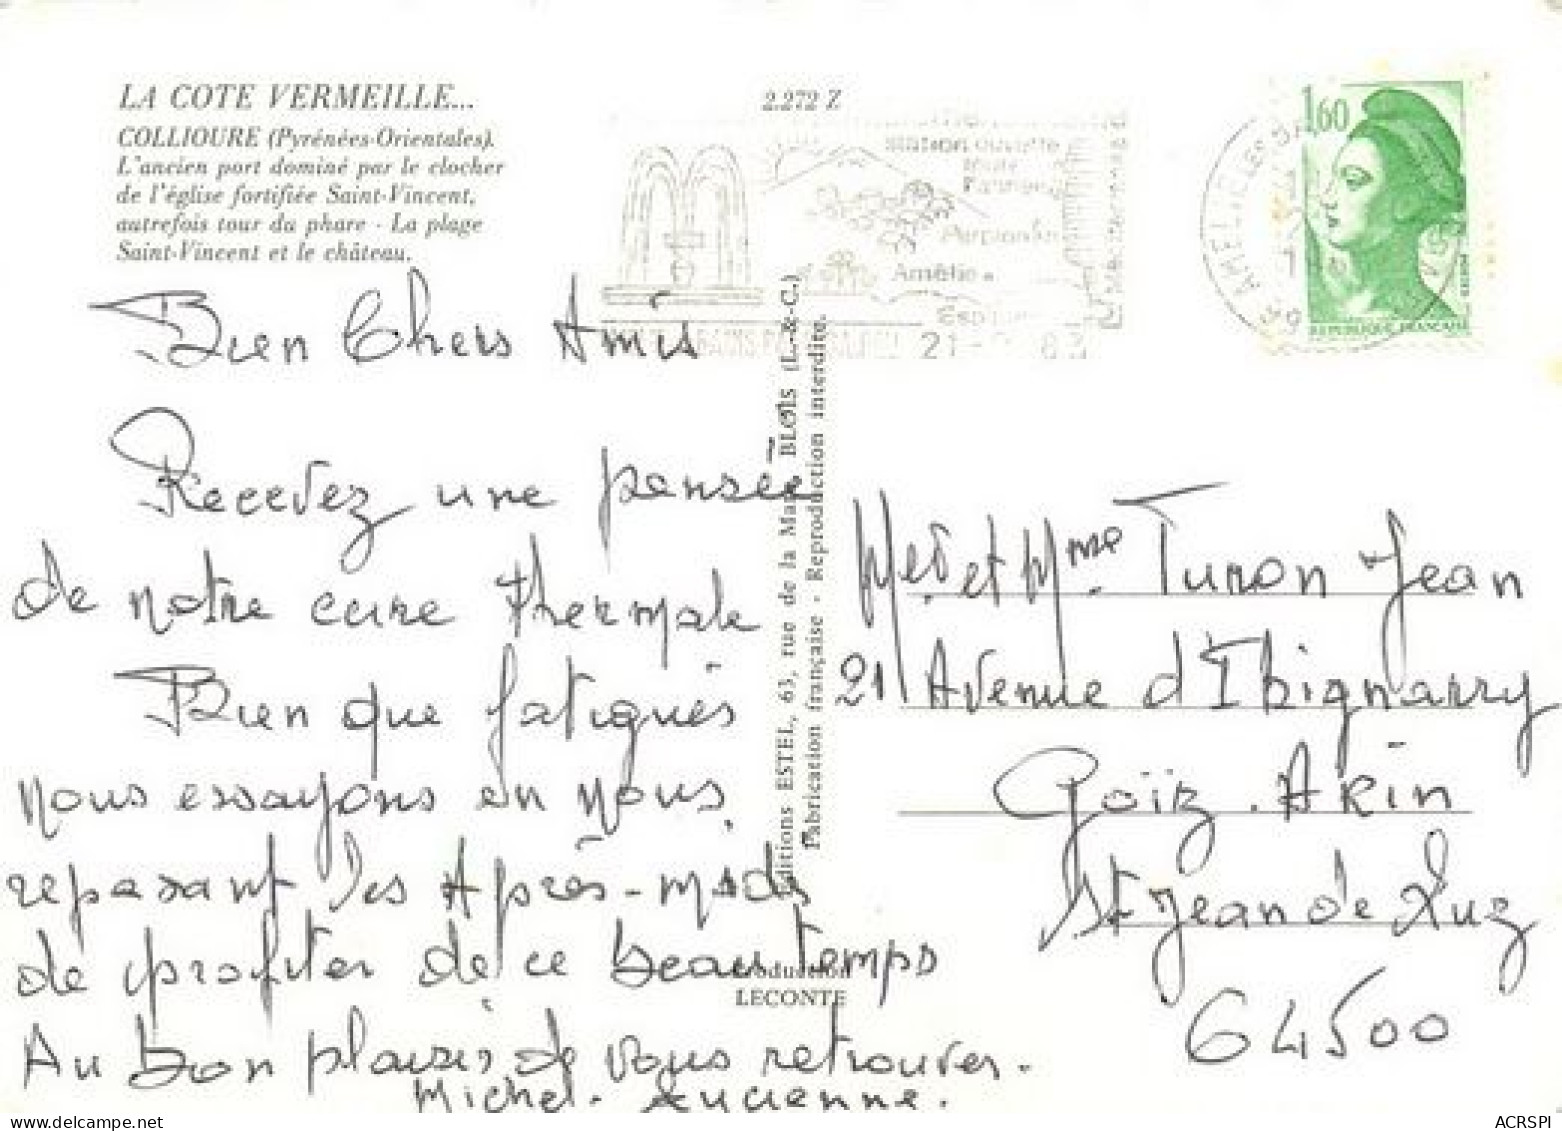 LA COTE VERMEILLE...
COLLIOURE (Pyrénées-Orientales).
L'ancien port dominé par le clocher
de l'église fortifiée Saint-Vincent,
autrefois tour du phare - La plage
Saint-Vincent et le château.
2.272 Z
station ouverte
toute
l'année
Perpignan
Amélie
Méditerranée
21 - 83
1,60
REPUBLIQUE FRANÇAISE
Bien Chers Amis
Recevez une pensée
de notre cure thermale
Bien que fatigués
nous essayons en nous
reposant les Après-midi
de profiter de ce beau temps
Au bon plaisir de vous retrouver.
Michel - Lucienne.
Editions ESTEL, 63, rue de la Mare BLOIS (L.-&-C.)
Fabrication française - Reproduction interdite.
Production
LECONTE
Mer et Mme Turon Jean
21 Avenue d'Ibignarry
Goïz. Akin
St Jean de Luz
64500
www.delcampe.net
ACRSPI